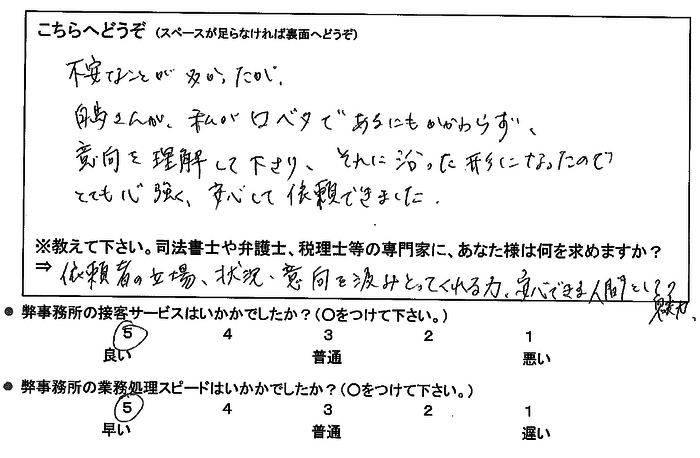 こちらへどうぞ (スペースが足らなければ裏面へどうぞ)
不安なことが多かったが、
白鳥さんが、私が口ベタであるにもかかわらず、
意向を理解して下さり、それに沿った形になったので
とても心強く、安心して依頼できました.
※教えて下さい。司法書士や弁護士、税理士等の専門家に、あなた様は何を求めますか?
⇒ 依頼者の立場、状況・意向を汲みとってくれる力、安心できる人間としての魅力、
● 弊事務所の接客サービスはいかかでしたか?(〇をつけて下さい。)
5 4 3 2 1
良い 普通 悪い
● 弊事務所の業務処理スピードはいかかでしたか?(〇をつけて下さい。)
5 4 3 2 1
早い 普通 遅い